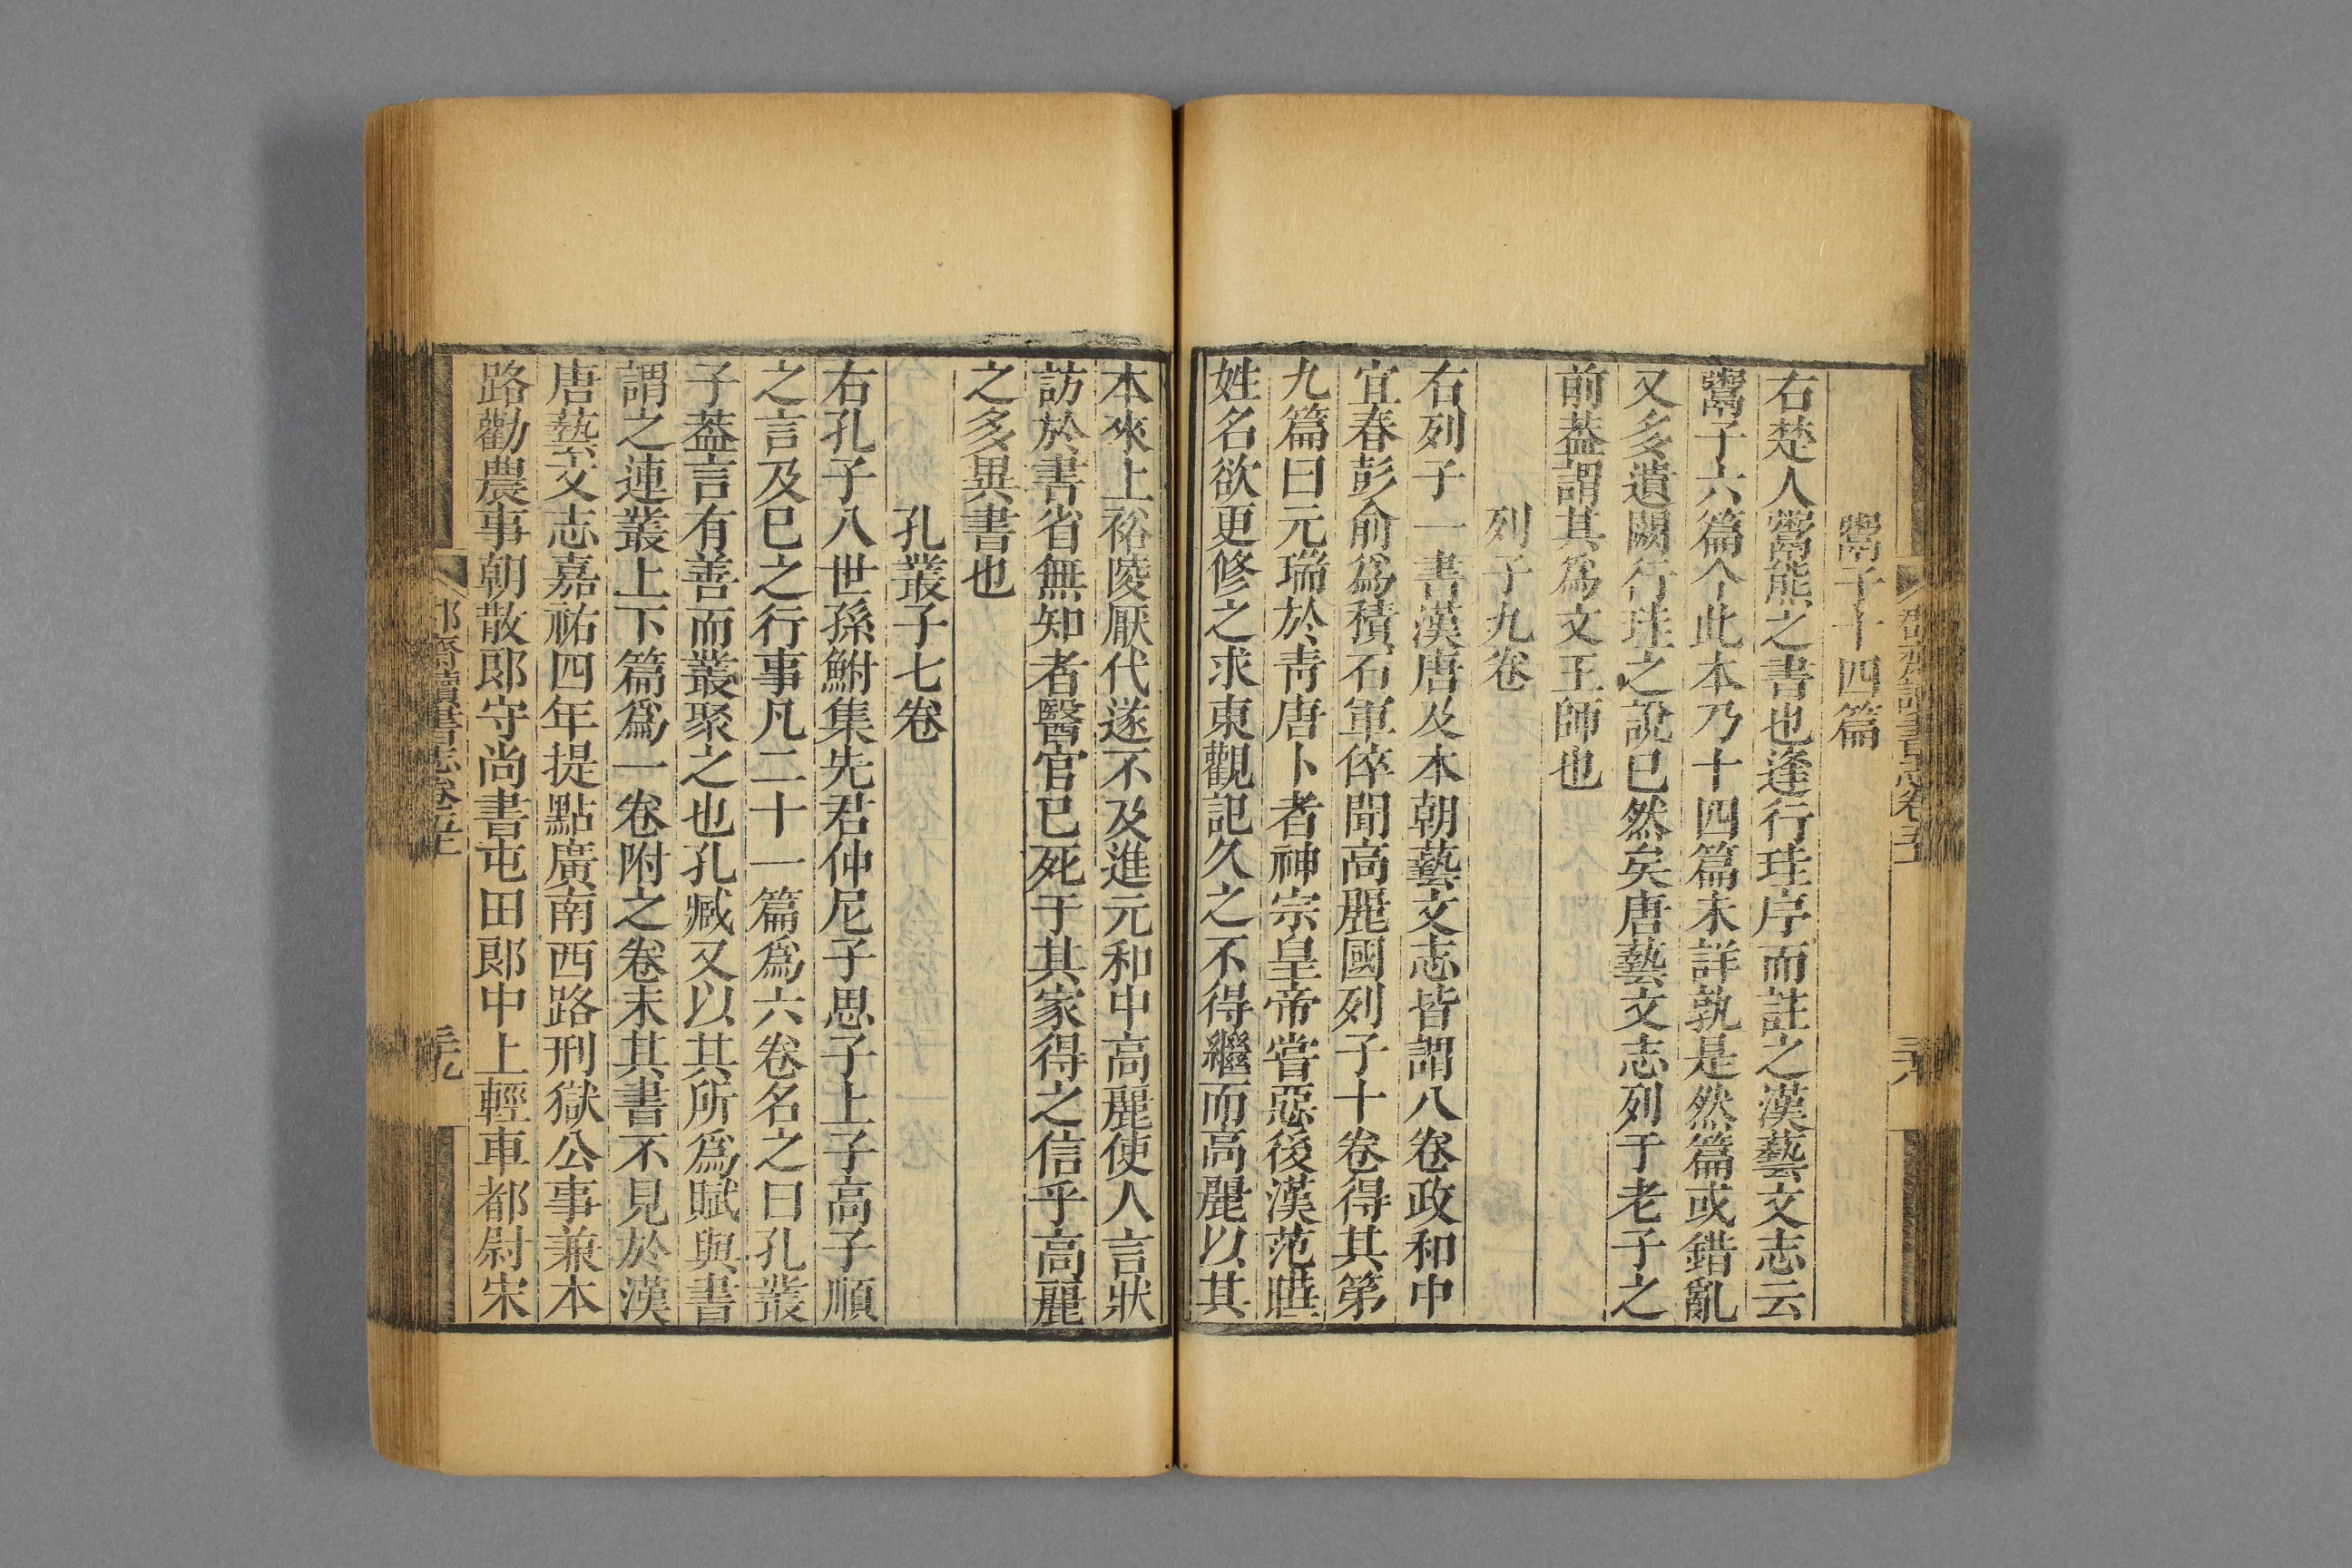 鬻子十四篇
右楚人鬻熊之書也逢行珪序而註之漢藝文志云
鬻子六篇今此本乃十四篇未詳孰是然篇或錯亂
又多遺闕行珪之說已然矣唐藝文志列于老子之
前葢謂其爲文王師也
列子九卷
右列子一書漢唐及本朝藝文志皆謂八卷政和中
宜春彭俞爲積石軍倅聞高麗國列子十卷得其第
九篇曰元瑞於靑唐卜者神宗皇帝嘗惡後漢范曄
姓名欲更修之求東觀記久之不得繼而高麗以其
本來上裕陵厭代遂不及進元和中高麗使人言狀
訪於書省無知者醫官已死于其家得之信乎高麗
之多異書也
孔叢子七卷
右孔子八世孫鮒集先君仲尼子思子上子高子順
之言及已之行事凡二十一篇爲六卷名之曰孔叢
子葢言有善而叢聚之也孔臧又以其所爲賦與書
謂之連叢上下篇爲一卷附之卷末其書不見於漢
唐藝文志嘉祐四年提點廣南西路刑獄公事兼本
路勸農事朝散郎守尚書屯田郎中上輕車都尉宋